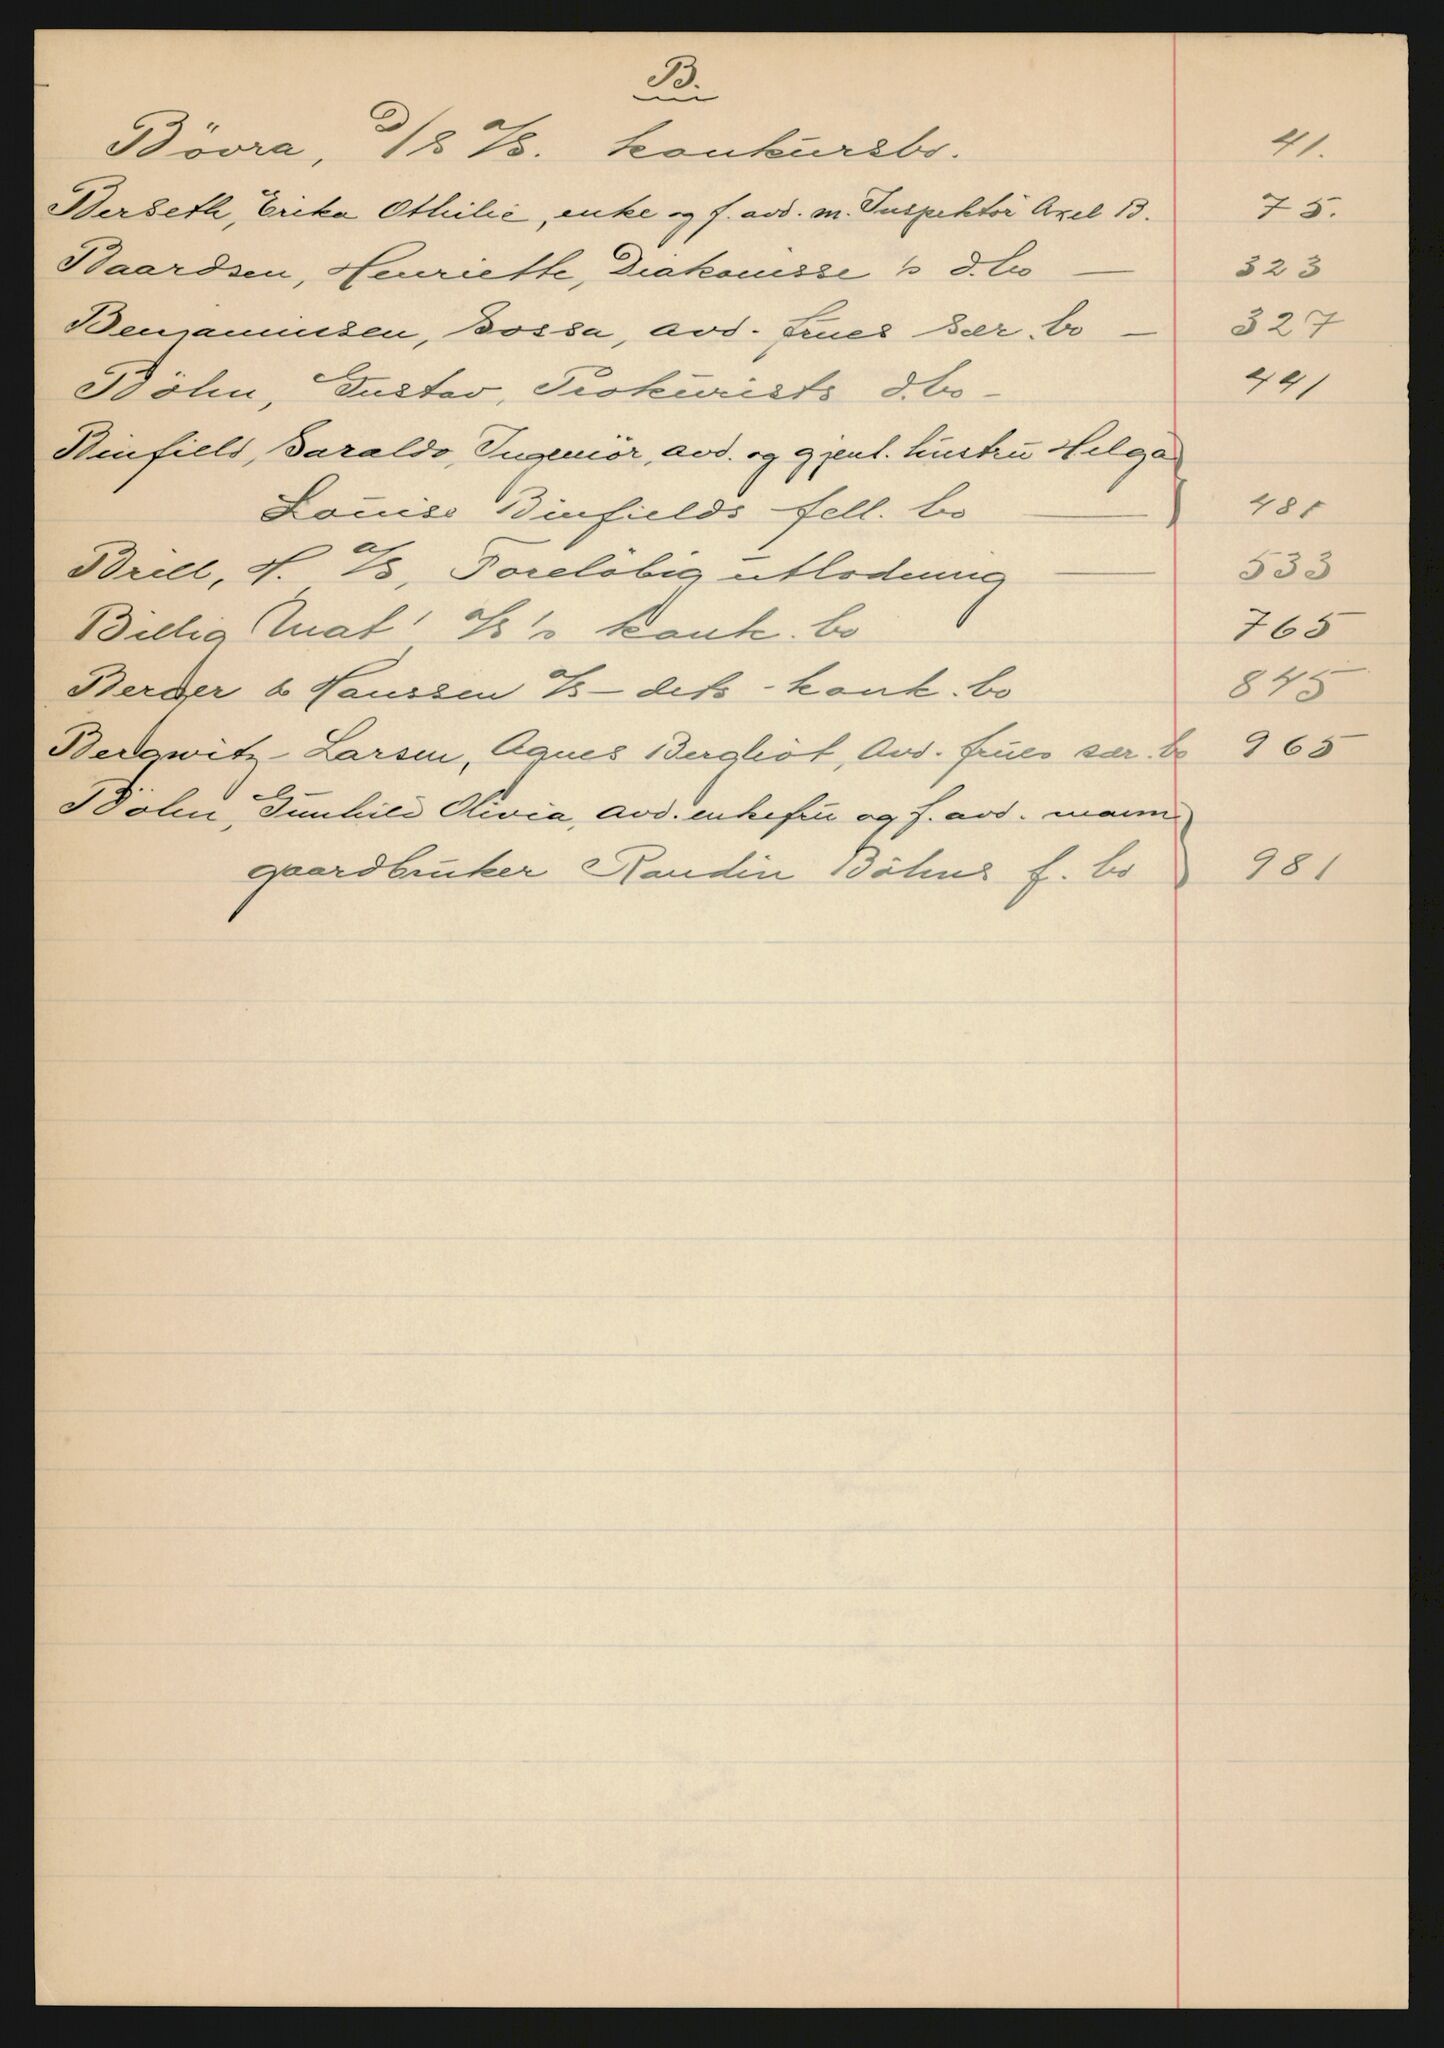 B.
Bövra, D/S A/S. konkursbo. 41.
Berseth, Erika Othilie, enke og f. avd. m. Inspektör Axel B. 75.
Baardsen, Henriette, Diakonisse's d.bo — 323
Benjaminsen, Bossa, avd. frues sær.bo — 327
Böhn, Gustav, Prokurists d.bo - 441
Binfield, Haraldo, Ingeniör, avd. og gjenl. hustru Helga
Louise Binfields fell. bo — 481
Brill, H. A/S, Foreløbig utlodning — 533
Billig Mat' A/S's konk. bo 765
Berger & Hanssen A/S — dets - konk. bo 845
Bergwitz-Larsen, Agnes Bergliot, Avd. frues sær.bo 965
Böhn, Gunhild Olivia, avd. enkefru og f. avd. mann
gaardbruker Randin Böhns f. bo 981